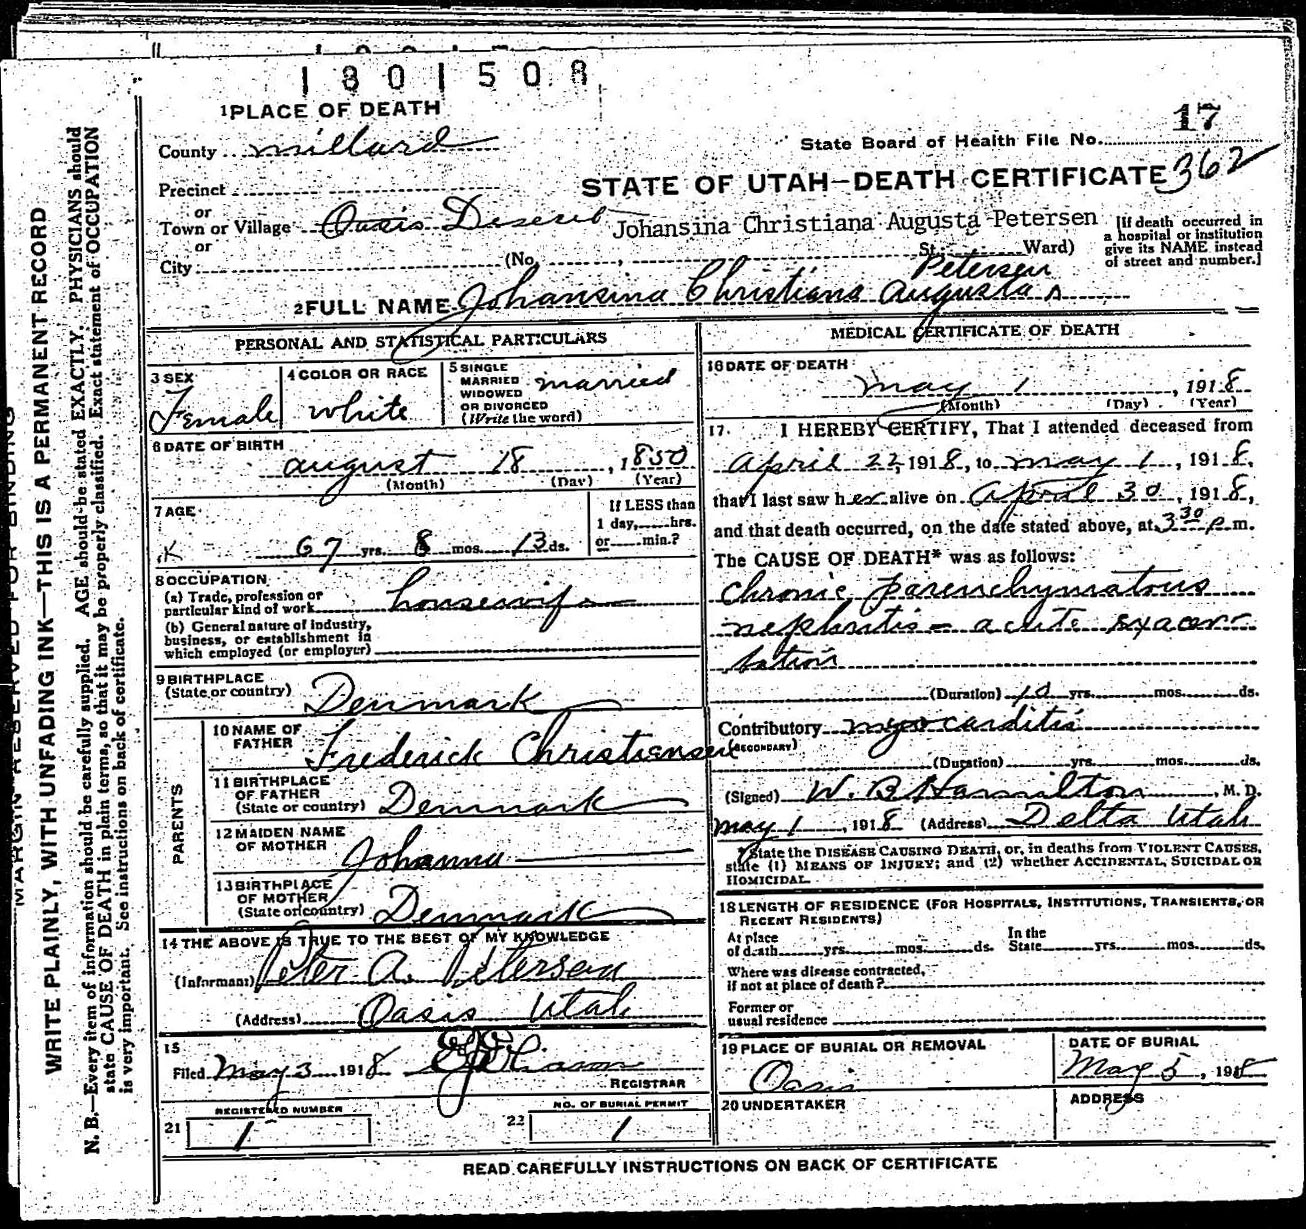 1801508
1 PLACE OF DEATH
17
State Board of Health File No.
County Millard
STATE OF UTAH—DEATH CERTIFICATE 362
Precinct
or
Town or Village Oasis Deseret Johansina Christiana Augusta Petersen
or
City (No. , St; Ward)
[If death occurred in
a hospital or institution
give its NAME instead
of street and number.]
Petersen
2 FULL NAME Johansina Christiana Augusta ^
PERSONAL AND STATISTICAL PARTICULARS
3 SEX
Female
4 COLOR OR RACE
white
5 SINGLE
MARRIED
WIDOWED
OR DIVORCED
(Write the word)
married
6 DATE OF BIRTH
august 18, 1850
(Month) (Day) (Year)
7 AGE
67 yrs. 8 mos. 13 ds.
If LESS than
1 day, hrs.
or min.?
8 OCCUPATION
(a) Trade, profession or
particular kind of work housewife
(b) General nature of industry,
business, or establishment in
which employed (or employer)
9 BIRTHPLACE
(State or country) Denmark
PARENTS
10 NAME OF
FATHER Frederick Christiansen
11 BIRTHPLACE
OF FATHER
(State or country) Denmark
12 MAIDEN NAME
OF MOTHER Johanna
13 BIRTHPLACE
OF MOTHER
(State or country) Denmark
14 THE ABOVE IS TRUE TO THE BEST OF MY KNOWLEDGE
(Informant) Peter A. Petersen
(Address) Oasis Utah
15
Filed May 3 1918
REGISTRAR
REGISTERED NUMBER
21 1
NO. OF BURIAL PERMIT
22 1
MEDICAL CERTIFICATE OF DEATH
16 DATE OF DEATH
May 1, 1918
(Month) (Day) (Year)
17. I HEREBY CERTIFY, That I attended deceased from
April 22, 1918, to May 1, 1918,
that I last saw her alive on April 30, 1918,
and that death occurred, on the date stated above, at 3 30 p m.
The CAUSE OF DEATH* was as follows:
Chronic parenchymatous
nephritis - acute exacer
bation
(Duration) 10 yrs. mos. ds.
Contributory myocarditis
(SECONDARY)
(Duration) yrs. mos. ds.
(Signed) W. B Hamilton, M. D.
May 1, 1918 (Address) Delta Utah
*State the DISEASE CAUSING DEATH, or, in deaths from VIOLENT CAUSES,
state (1) MEANS OF INJURY; and (2) whether ACCIDENTAL, SUICIDAL OR
HOMICIDAL.
18 LENGTH OF RESIDENCE (FOR HOSPITALS, INSTITUTIONS, TRANSIENTS, OR
RECENT RESIDENTS)
At place
of death yrs. mos. ds.
In the
State yrs. mos. ds.
Where was disease contracted,
if not at place of death?
Former or
usual residence
19 PLACE OF BURIAL OR REMOVAL
Oasis
DATE OF BURIAL
May 5, 1918
20 UNDERTAKER
ADDRESS
READ CAREFULLY INSTRUCTIONS ON BACK OF CERTIFICATE
MARGIN RESERVED FOR BINDING
WRITE PLAINLY, WITH UNFADING INK—THIS IS A PERMANENT RECORD
N. B.—Every item of information should be carefully supplied. AGE should be stated EXACTLY. PHYSICIANS should
state CAUSE OF DEATH in plain terms, so that it may be properly classified. Exact statement of OCCUPATION
is very important. See instructions on back of certificate.